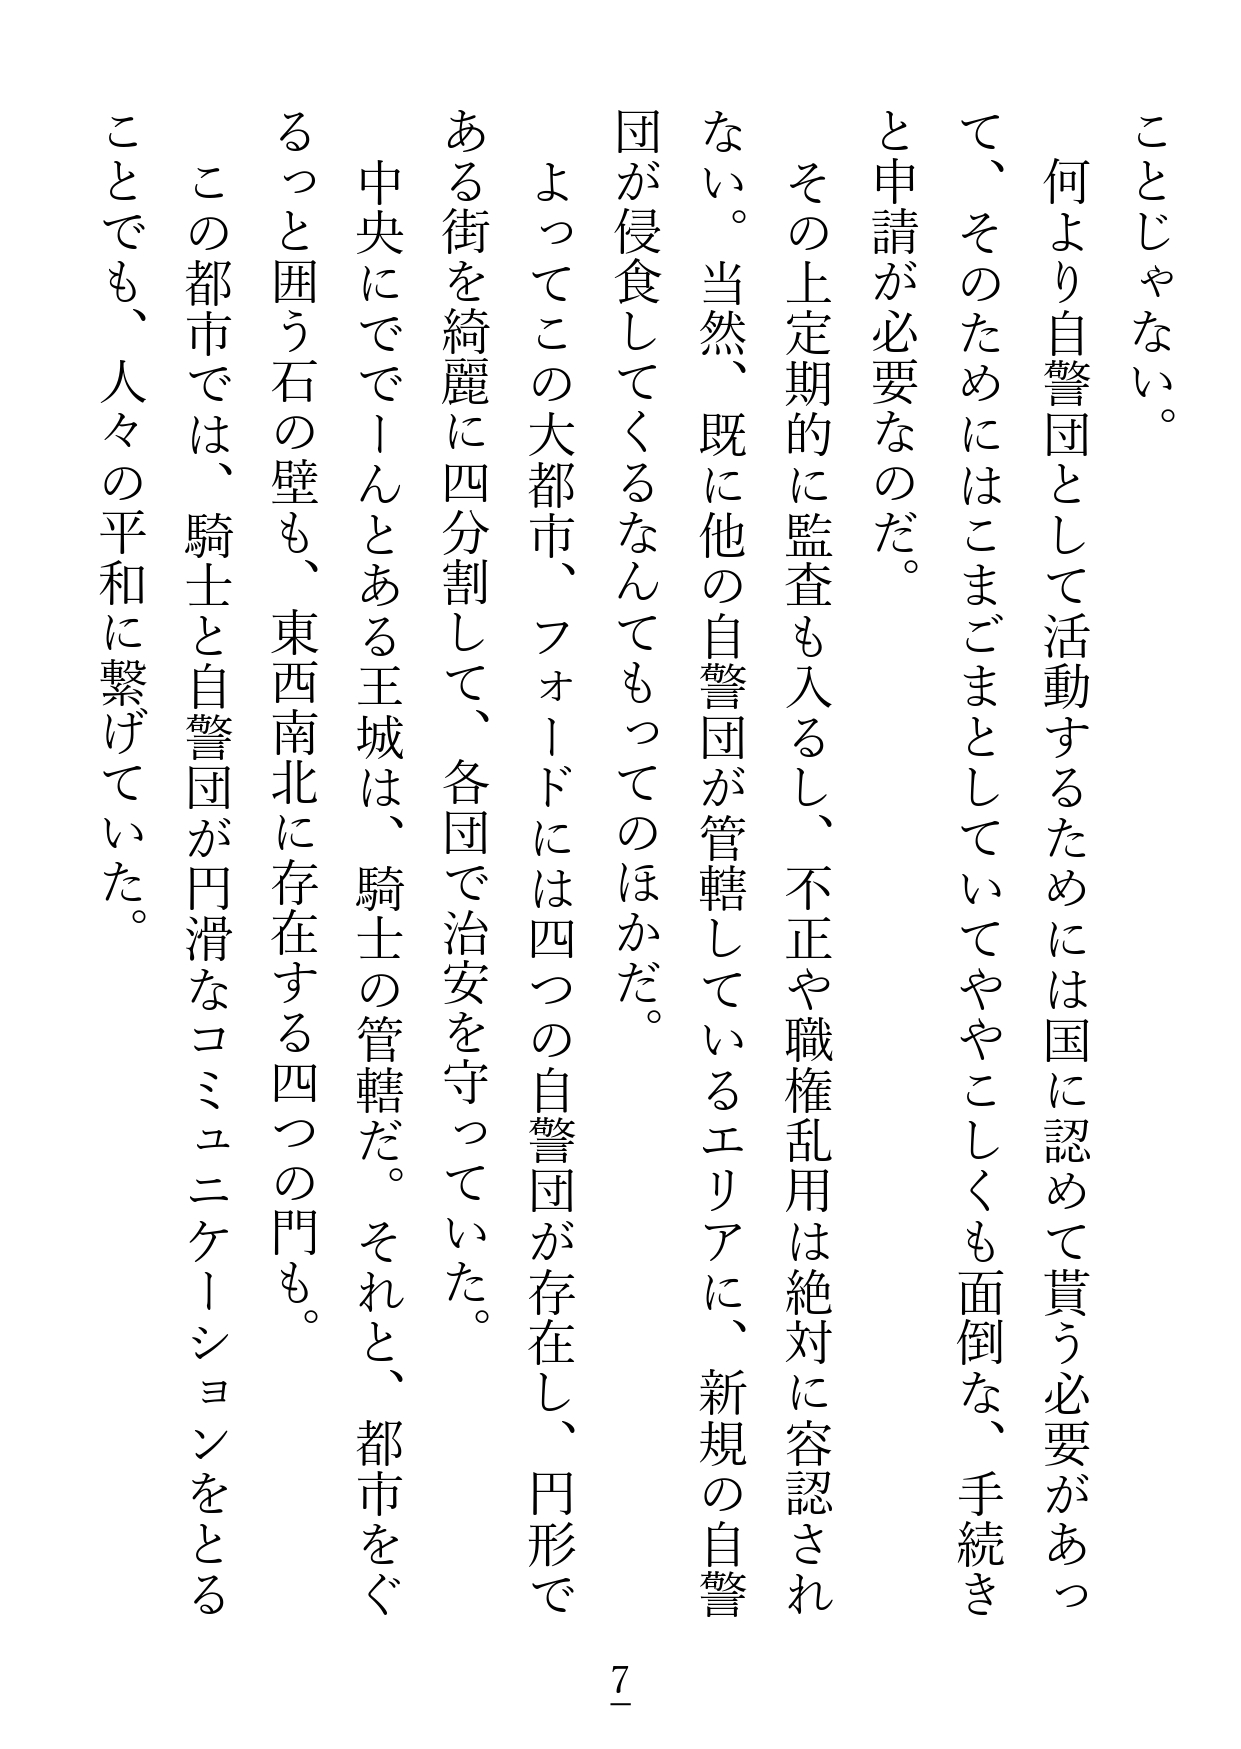 ことじゃない。
　何より自警団として活動するためには国に認めて貰う必要があっ
て、そのためにはこまごまとしていてややこしくも面倒な、手続き
と申請が必要なのだ。
　その上定期的に監査も入るし、不正や職権乱用は絶対に容認され
ない。当然、既に他の自警団が管轄しているエリアに、新規の自警
団が侵食してくるなんてもってのほかだ。
　よってこの大都市、フォードには四つの自警団が存在し、円形で
ある街を綺麗に四分割して、各団で治安を守っていた。
　中央にででーんとある王城は、騎士の管轄だ。それと、都市をぐ
るっと囲う石の壁も、東西南北に存在する四つの門も。
　この都市では、騎士と自警団が円滑なコミュニケーションをとる
ことでも、人々の平和に繋げていた。
7